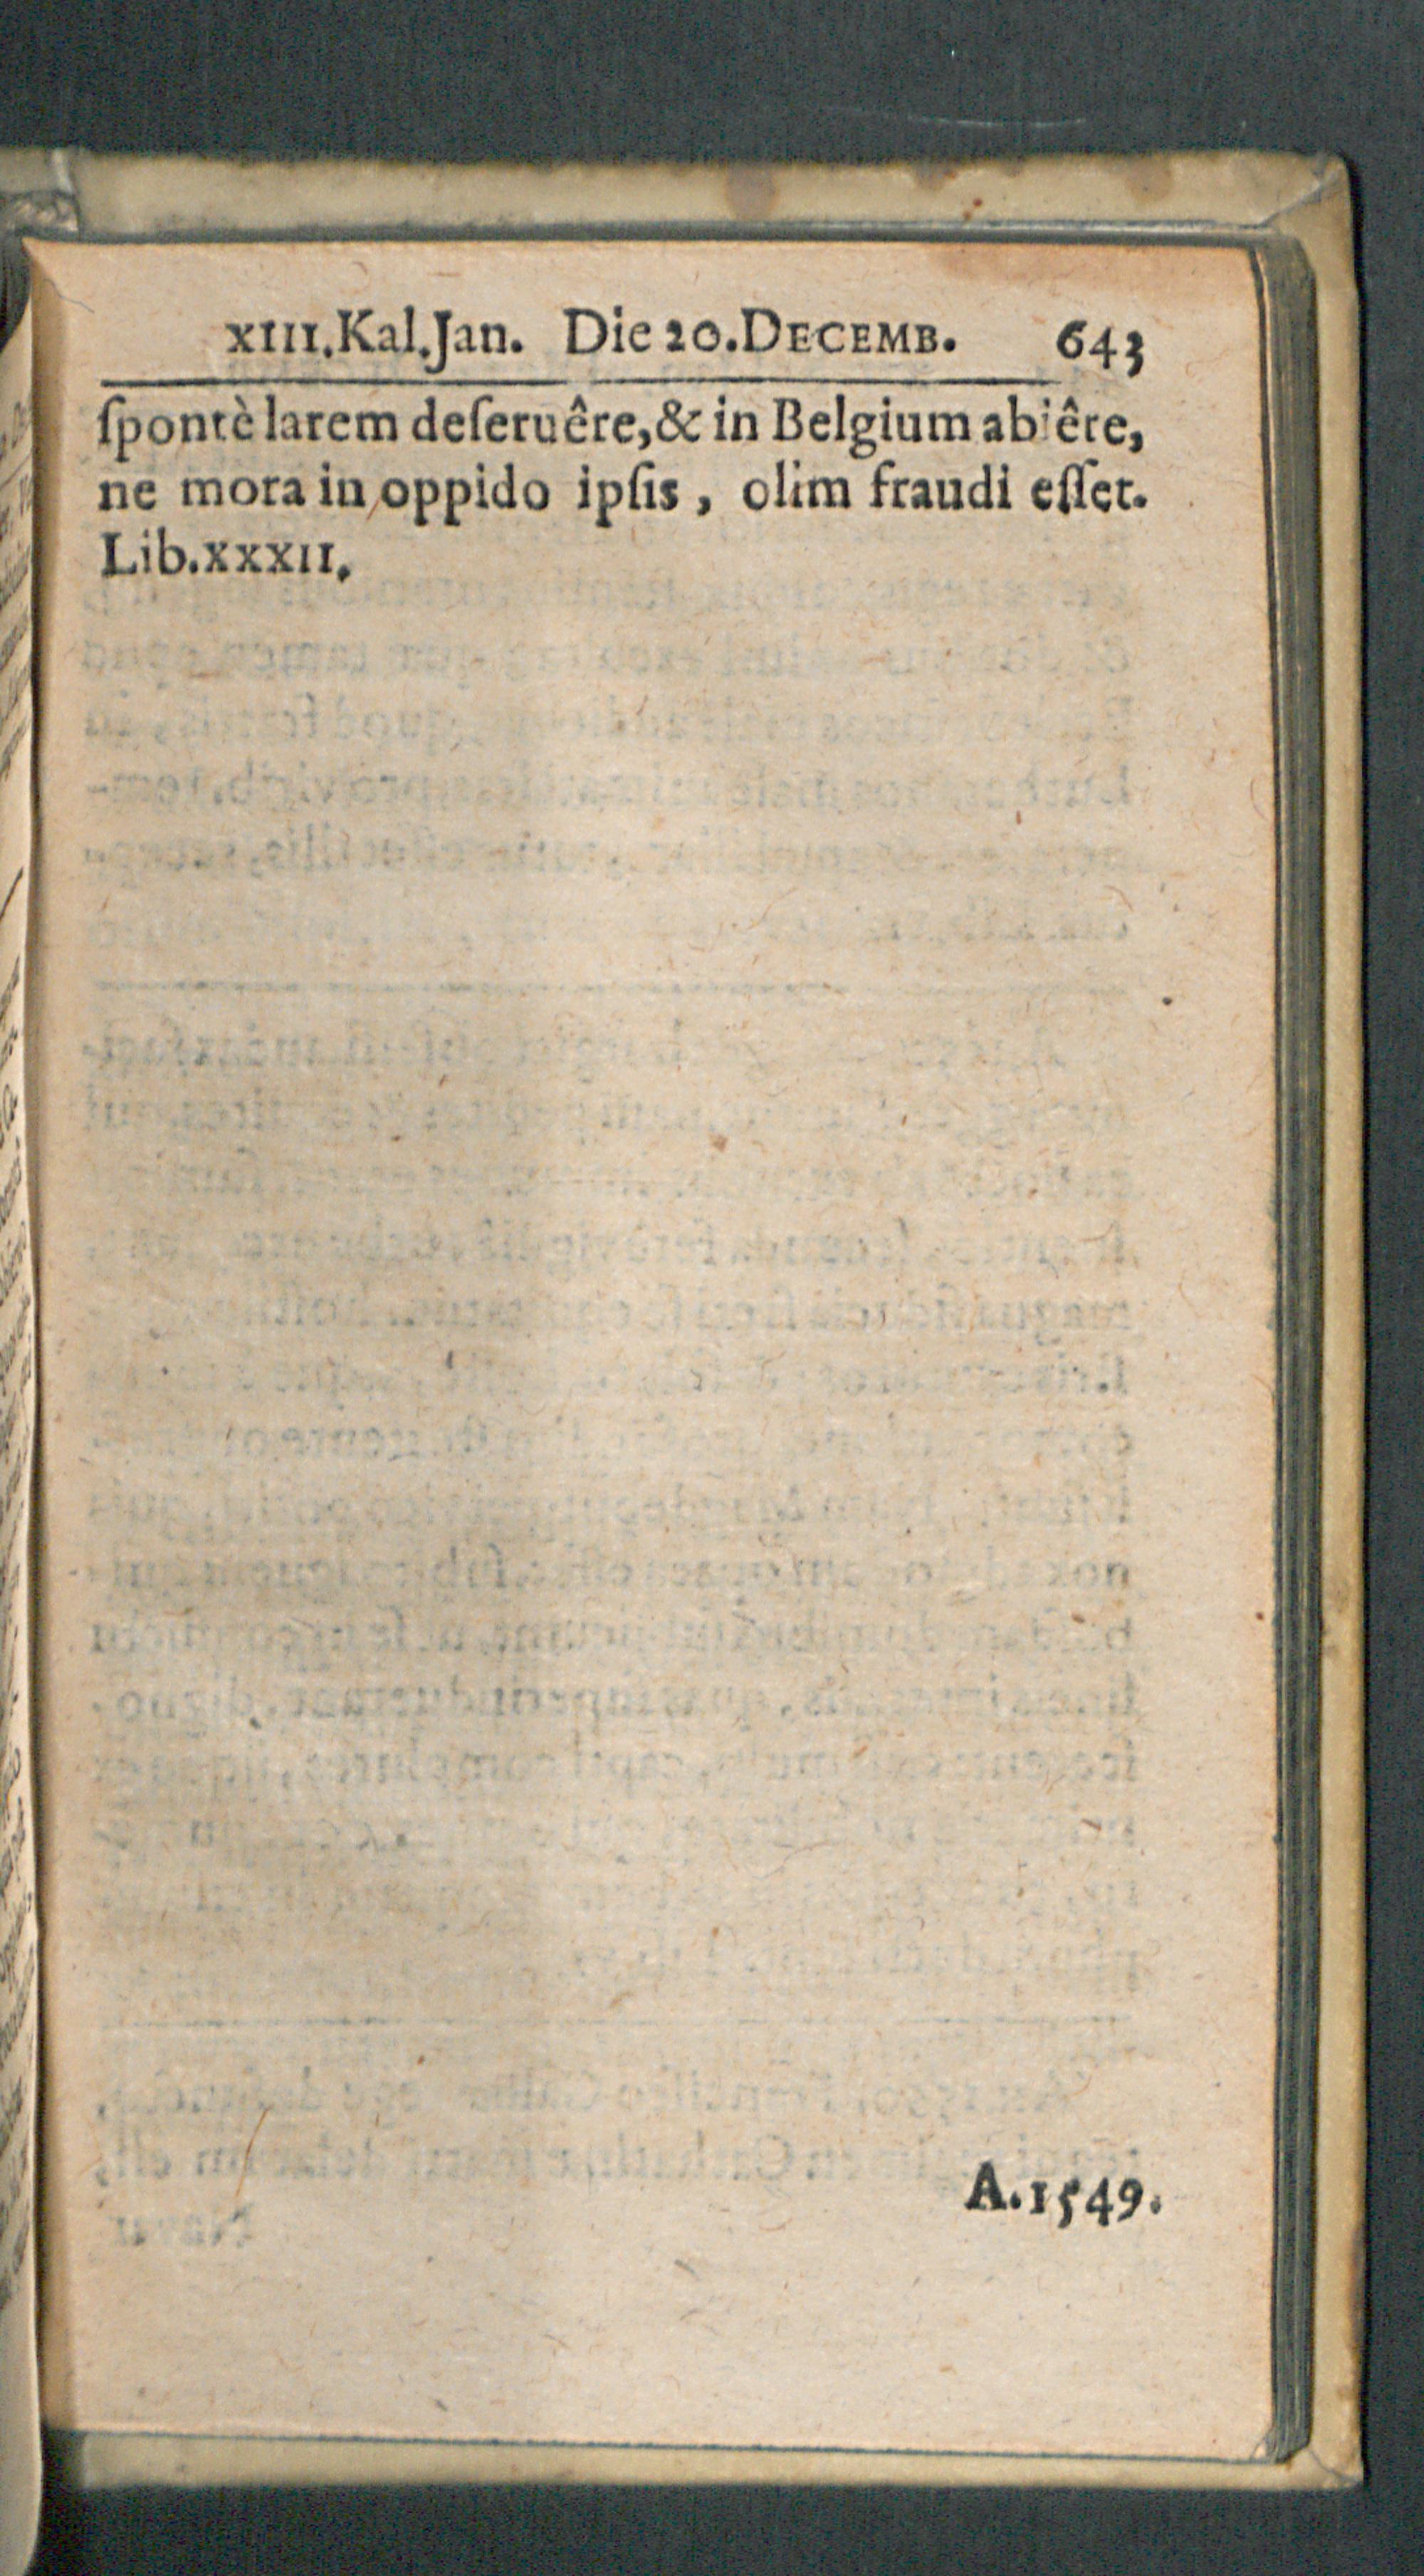 xiii.Kal.Jan. Die 20.Decemb. 643
ſpontè larem deſeruêre,& in Belgium abiêre,
ne mora in oppido ipſis, olim fraudi eſſet.
Lib.xxxii.
A.1549.